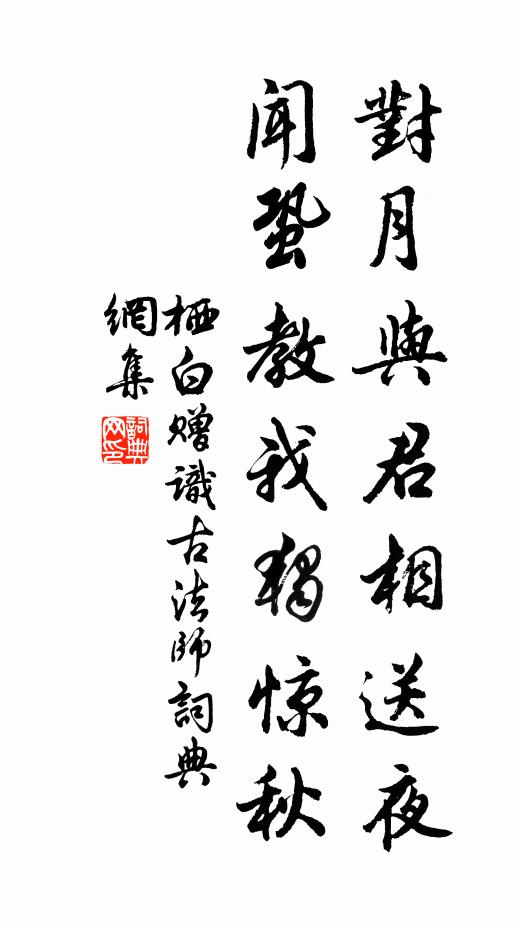 對月與君相送夜
聞蛩教我獨惊秋
栖白赠識古法師詞典
網集
詞典
网印